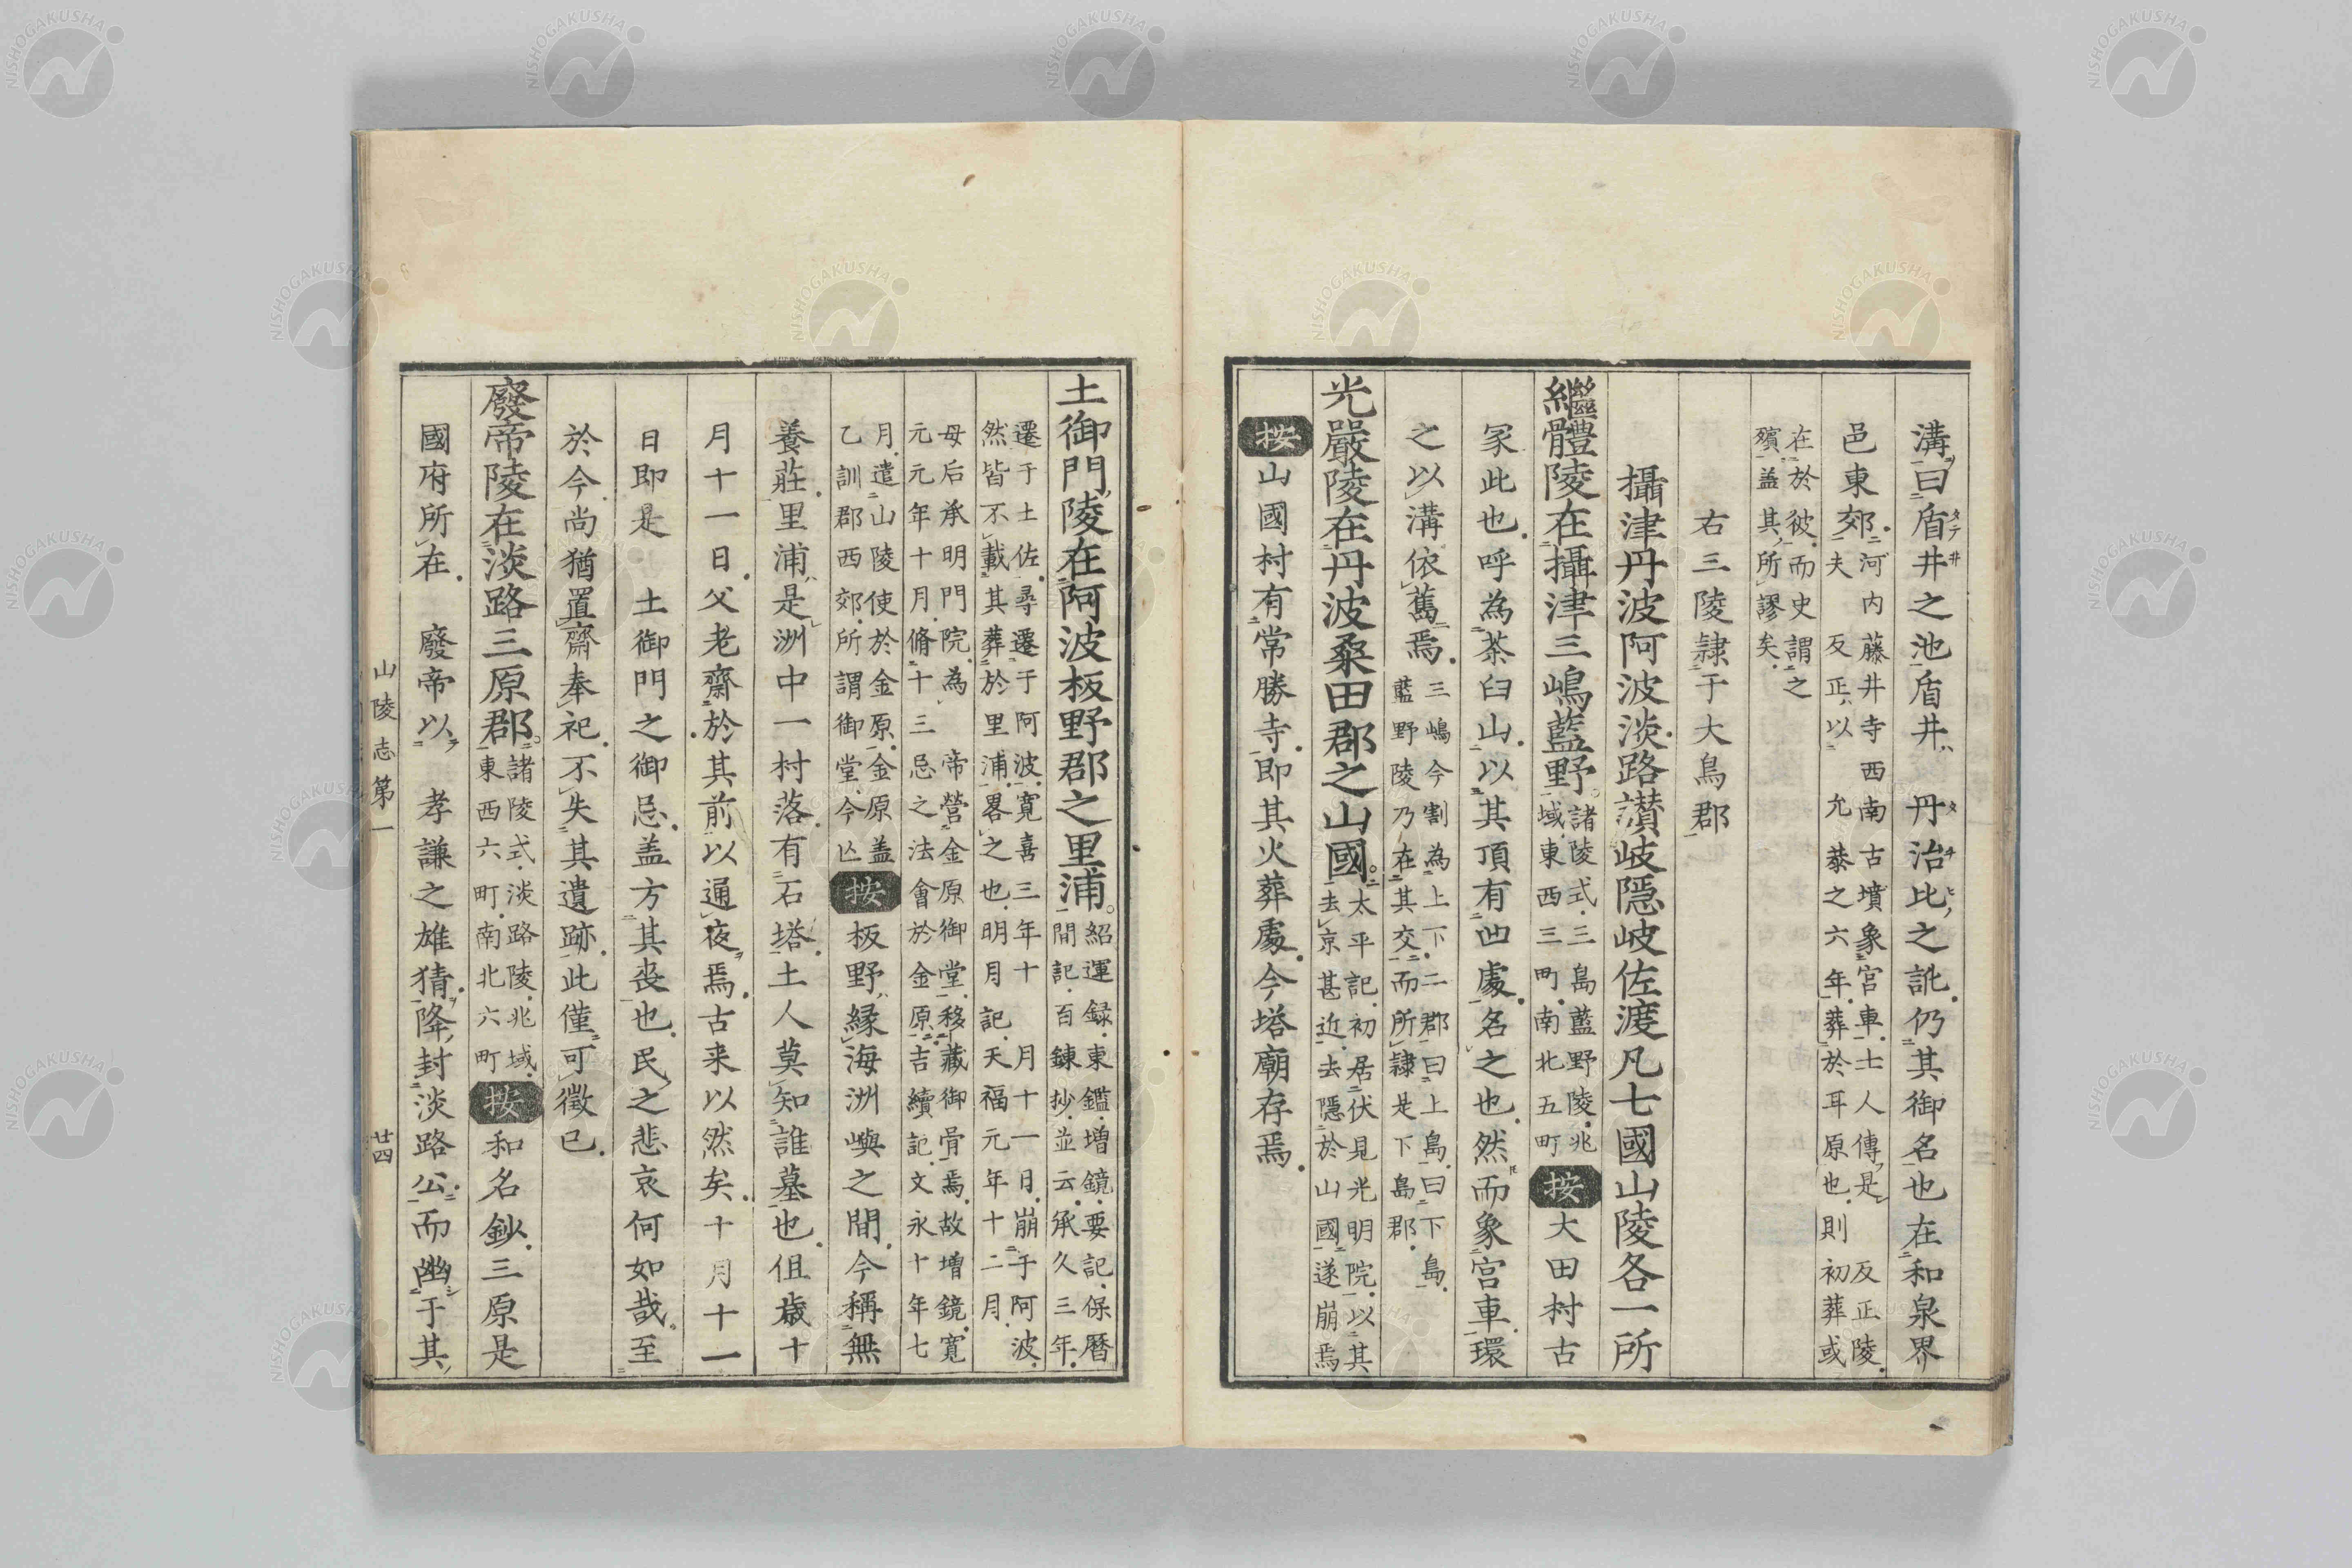 溝曰盾井之池盾井 丹治比之訛仍其御名也在和泉界
邑東郊河内藤井寺西南古墳象宮車士人傳是 反正陵
夫 反正以 允恭之六年葬於耳原也則初葬或
在於彼而史謂之
殯盖其所謬矣
右三陵隷于大鳥郡
攝津丹波阿波淡路讃岐隱岐佐渡凡七國山陵各一所
繼體陵在攝津三嶋藍野諸陵式三島藍野陵兆
域東西三町南北五町按大田村古
冢此也呼為茶臼山以其頂有凹處名之也然而象宮車環
之以溝依舊焉三嶋今割為上下二郡曰上島曰下島
藍野陵乃在其交而所隷是下島郡
光嚴陵在丹波桑田郡之山國太平記初居伏見光明院以其
去京甚近去隱於山國遂崩焉
按山國村有常勝寺即其火葬處今塔廟存焉
土御門陵在阿波板野郡之里浦紹運録東鑑増鏡要記保暦
間記百錬抄並云承久三年
遷于土佐尋遷于阿波寛喜三年十 月十一日崩于阿波
然皆不載其葬於里浦畧之也明月記天福元年十二月
母后承明門院為 帝營金原御堂移藏御骨焉故増鏡寛
元元年十月脩十三忌之法會於金原吉續記文永十年七
月遣山陵使於金原金原盖
乙訓郡西郊所謂御堂今亾按板野縁海洲嶼之間今稱無
養莊里浦是洲中一村落有石塔土人莫知誰墓也但歳十
月十一日父老齋於其前以通夜焉古来以然矣十月十一
日即是 土御門之御忌盖方其喪也民之悲哀何如哉至
於今尚猶置齋奉祀不失其遺跡此僅可徴已
廢帝陵在淡路三原郡諸陵式淡路陵兆域
東西六町南北六町按和名鈔三原是
國府所在 廢帝以 孝謙之雄猜降封淡路公而幽于其
山陵志第一 廿四
NISHOGAKUSHA